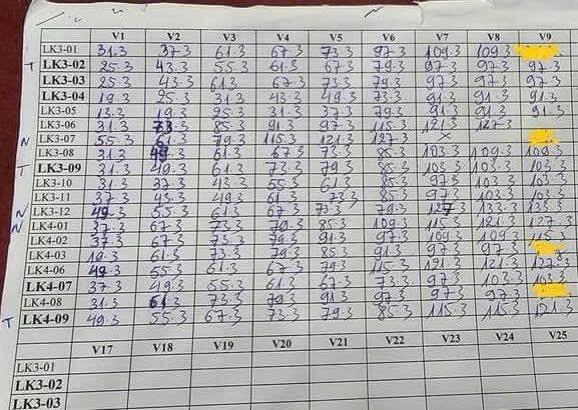 V1 V2 V3 V4 V5 V6 V7 V8 V9
LK3-01 31.3 37.3 61.3 67.3 73.3 97.3 109.3 109.3
T LK3-02 25.3 43.3 55.3 61.3 67.3 79.3 97.3 97.3 97.3
LK3-03 25.3 43.3 61.3 67.3 73.3 79.3 97.3 97.3 97.3
LK3-04 19.3 25.3 31.3 43.3 49.3 73.3 91.3 91.3 91.3
LK3-05 13.3 19.3 25.3 31.3 37.3 79.3 91.3 91.3 91.3
LK3-06 31.3 73.3 85.3 91.3 97.3 115.3 121.3 127.3
N LK3-07 55.3 61.3 79.3 115.3 121.3 127.3 ×
LK3-08 31.3 49.3 61.3 67.3 73.3 85.3 103.3 109.3 109.3
T LK3-09 31.3 49.3 61.3 73.3 79.3 85.3 103.3 103.3 103.3
LK3-10 31.3 37.3 43.3 55.3 61.3 85.3 97.3 103.3 103.3
LK3-11 37.3 43.3 49.3 61.3 73.3 85.3 97.3 103.3 103.3
N LK3-12 49.3 55.3 61.3 67.3 73.3 79.3 127.3 133.3 133.3
N LK4-01 37.3 67.3 73.3 79.3 85.3 109.3 115.3 121.3 127.3
LK4-02 37.3 67.3 73.3 79.3 91.3 97.3 109.3 109.3 115.3
LK4-03 19.3 61.3 73.3 79.3 85.3 91.3 97.3 97.3
LK4-06 49.3 55.3 61.3 67.3 79.3 115.3 121.3 121.3 127.3
LK4-07 37.3 49.3 55.3 61.3 67.3 73.3 97.3 103.3 103.3
LK4-08 31.3 61.3 73.3 79.3 91.3 97.3 97.3 97.3
T LK4-09 49.3 55.3 67.3 73.3 79.3 85.3 115.3 115.3 121.3
V17 V18 V19 V20 V21 V22 V23 V24 V25
LK3-01
LK3-02
LK3-03